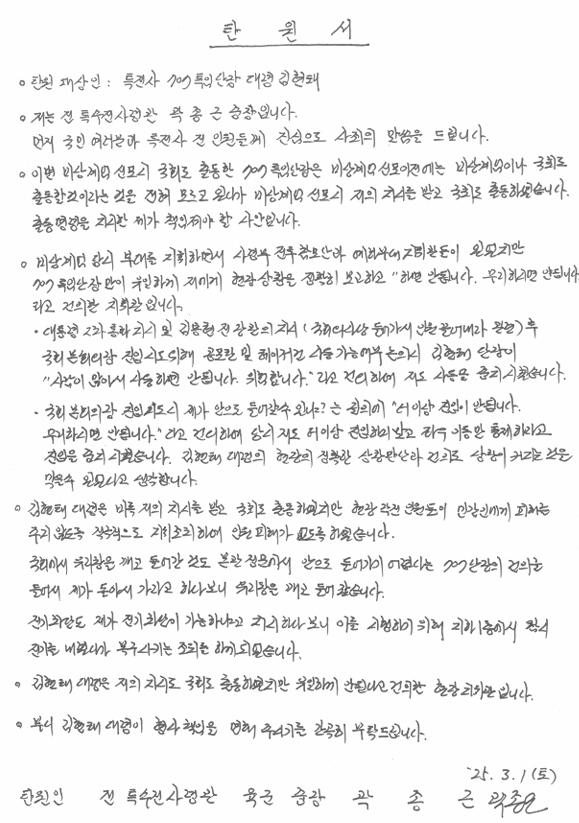 탄 원 서
o 탄원 대상인 : 특전사 707특임단장 대령 김현태
o 저는 전 특수전사령관 곽 종 근 중장입니다.
먼저 국민 여러분과 특전사 전 인원들께 진심으로 사죄의 말씀을 드립니다.
o 이번 비상계엄 선포시 국회로 출동한 707특임단장은 비상계엄 선포이전에는 비상계엄이나 국회로
출동할것이라는 것을 전혀 모르고 있다가 비상계엄 선포시 저의 지시를 받고 국회로 출동하였습니다.
출동명령을 지시한 제가 책임져야 할 사안입니다.
o 비상계엄 당시 부대를 지휘하면서 사령부 전투참모단과 예하부대 지휘관들이 있었지만
707특임단장만이 유일하게 저에게 현장 상황을 정확히 보고하고 "하면 안됩니다. 무리하시면 안됩니다"
라고 건의한 지휘관입니다.
· 대통령 2차 통화 지시 및 김용현 전 장관의 지시 (국회의사당 들어가서 인원 끌어내라 관련) 후
국회 본회의장 진입시도 위해 공포탄 및 테이저건 사용 가능여부 논의시 김현태 단장이
"사람이 많아서 사용하면 안됩니다. 위험합니다." 라고 건의하여 저도 사용을 중지시켰습니다.
· 국회 본회의장 진입시도시 제가 안으로 들어갈수 있나? 는 질의에 "더이상 진입이 안됩니다.
무리하시면 안됩니다." 라고 건의하여 당시 저도 더이상 진입하지말고 하고 이동만 통제하라고
진입을 중지시켰습니다. 김현태 대령의 현장의 정확한 상황판단과 건의로 상황이 커지는 것을
막을수 있었다고 생각합니다.
o 김현태 대령은 비록 저의 지시를 받고 국회로 출동하였지만 현장 작전 인원들이 민간인에게 피해를
주지 않도록 적극적으로 지휘조치하여 인원 피해가 없도록 하였습니다.
국회에서 유리창을 깨고 들어간 것도 본관 정문에서 안으로 들어가기 어렵다는 707단장의 건의를
듣고서 제가 돌아서 가라고 하다보니 유리창을 깨고 들어갔습니다.
전기차단도 제가 전기차단이 가능하냐고 지시하다 보니 이를 시행하기 위해 지하1층에서 잠시
전기를 내렸다가 복구시키는 조치를 하게 되었습니다.
o 김현태 대령은 저의 지시로 국회로 출동하였지만 유일하게 안된다고 건의한 현장 지휘관 입니다.
o 부디 김현태 대령이 형사 책임을 면해 주시기를 간곡히 부탁드립니다.
'25. 3. 1 (토)
탄원인 전 특수전사령관 육군 중장 곽 종 근 곽종근